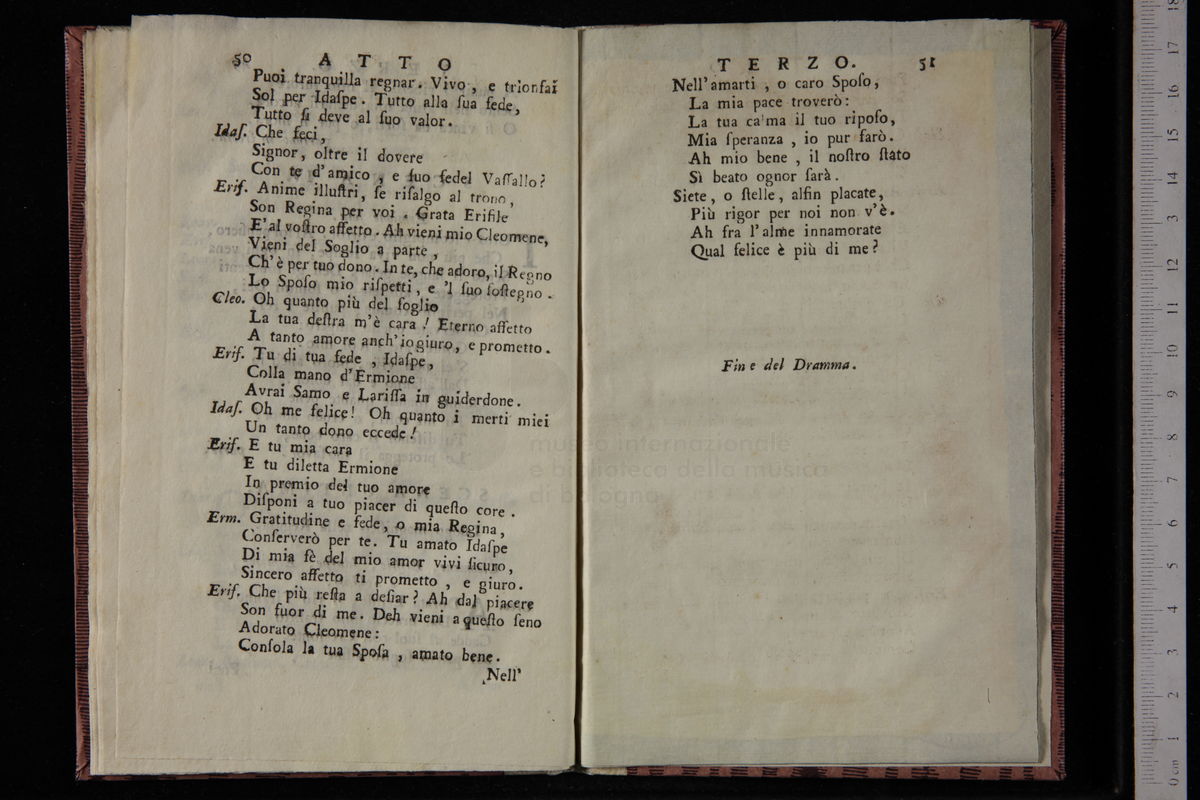 50 ATTO
Puoi tranquilla regnar. Vivo, e trionfai
Sol per Idaſpe. Tutto alla ſua fede,
Tutto ſi deve al ſuo valor.
Idaſ. Che feci,
Signor, oltre il dovere
Con te d'amico, e ſuo fedel Vaſſallo?
Erif. Anime illuſtri, ſe riſalgo al trono,
Son Regina per voi. Grata Erifile
E' al voſtro affetto. Ah vieni mio Cleomene,
Vieni del Soglio a parte,
Ch'è per tuo dono. In te, che adoro, il Regno
Lo Spoſo mio riſpetti, e 'l ſuo ſoſtegno.
Cleo. Oh quanto più del ſoglio
La tua deſtra m'è cara! Eterno affetto
A tanto amore anch'io giuro, e prometto.
Erif. Tu di tua fede, Idaſpe,
Colla mano d'Ermione
Avrai Samo e Lariſſa in guiderdone.
Idaſ. Oh me felice! Oh quanto i merti miei
Un tanto dono eccede!
Erif. E tu mia cara
E tu diletta Ermione
In premio del tuo amore
Diſponi a tuo piacer di queſto core.
Erm. Gratitudine e fede, o mia Regina,
Conſerverò per te. Tu amato Idaſpe
Di mia fè del mio amor vivi ſicuro,
Sincero affetto ti prometto, e giuro.
Erif. Che più reſta a deſiar? Ah dal piacere
Son fuor di me. Deh vieni a queſto ſeno
Adorato Cleomene:
Conſola la tua Spoſa, amato bene.
Nell'
TERZO. 51
Nell'amarti, o caro Spoſo,
La mia pace troverò:
La tua ca'ma il tuo ripoſo,
Mia ſperanza, io pur farò.
Ah mio bene, il noſtro ſtato
Sì beato ognor ſarà.
Siete, o ſtelle, alfin placate,
Più rigor per noi non v'è.
Ah fra l'alme innamorate
Qual felice è più di me?
Fine del Dramma.
museo internazionale
e biblioteca della musica
di bologna
0 cm 1 2 3 4 5 6 7 8 9 10 11 12 13 14 15 16 17 18